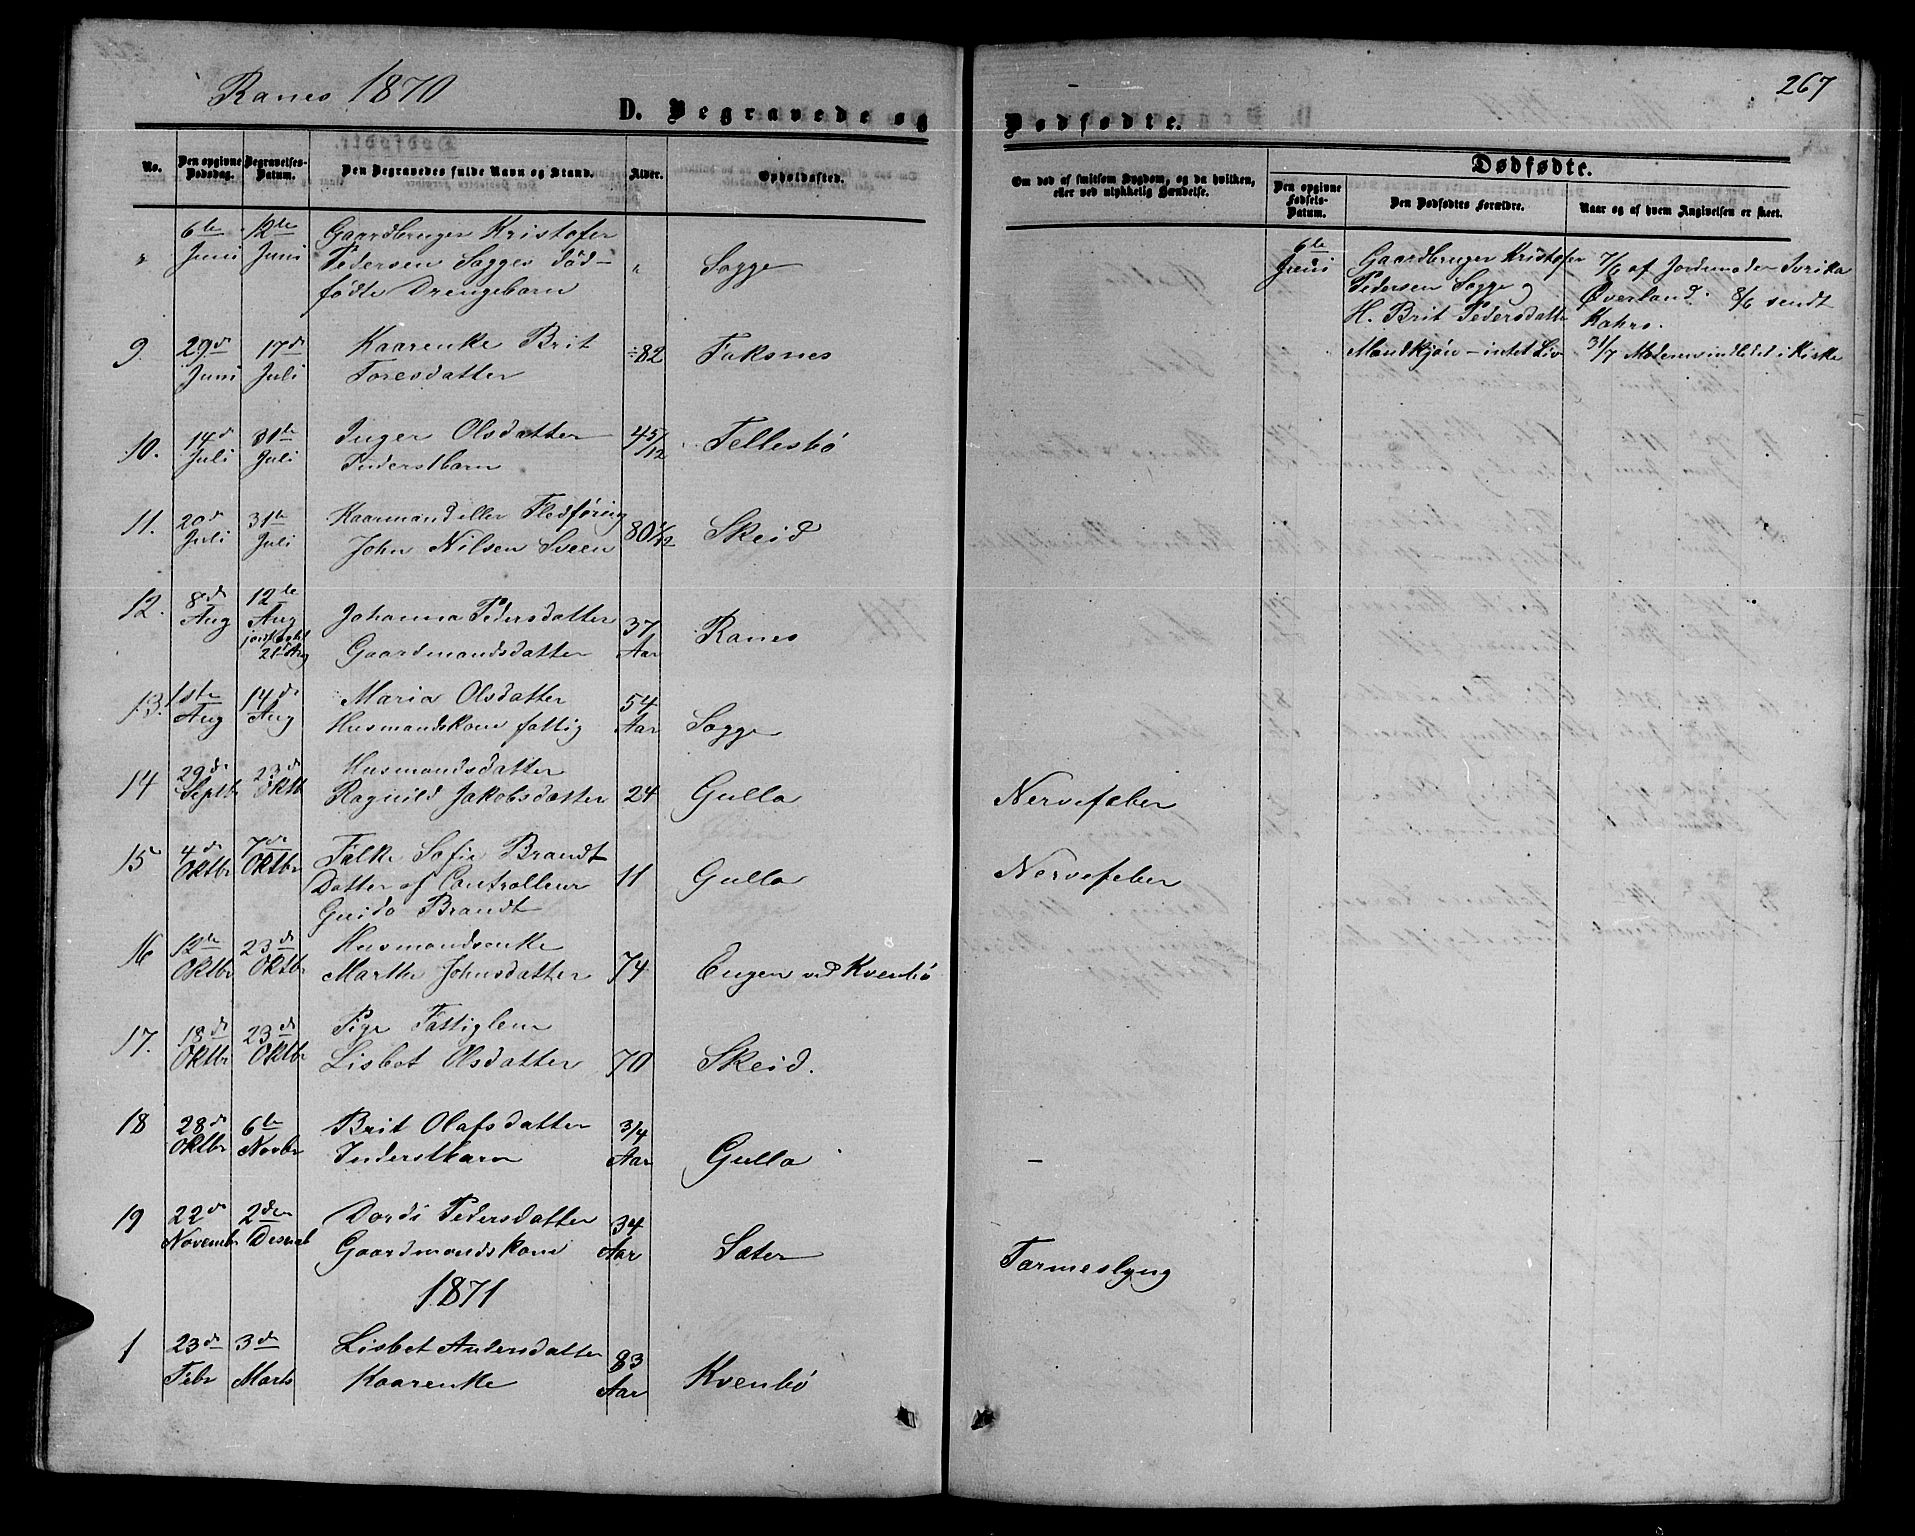 Ranes 1870
267
D. Begravede og
Dødfødte.
No.
Den opgivne Dødsdag.
Begravelses-Datum.
Den Begravedes fulde Navn og Stand.
Alder.
Opholdssted.
Om død af smitsom Sygdom, og da hvilken, eller ved ulykkelig Hændelse.
Dødfødte.
Den opgivne Fødsels-Datum.
Den Dødfødtes Forældre.
Naar og af hvem Angivelsen er skeet.
" 6te Juni 12te Juni Gaardbruger Kristofer
Pedersen Sogges död-
födte Drengebarn " Sogge
6te Juni
Gaardbruger Kristofer
Pedersen Sogge og
H. Brit Pedersdatter
Mandkjön – intet Liv
7/6 af Jordemoder
Øverland. 8/6 sendt
Kahrs.
31/7 Moderen indledet i Kirke
9. 29de Juni 17de Juli Kaarenke Brit
Toresdatter 82 Foksnes
10. 14de Juli 31te Juli Inger Olsdatter
Inderstbarn 4 5/12 Fellesbö
11. 20de Juli 31te Juli Kaarmand eller Fledföring
John Nilsen Sveen 80 Skeid
12. 8de Aug 12te Aug
jordkastet
21de Aug
Johanna Pedersdatter
Gaardmandsdatter 37 Aar Ranes
13. 1ste Aug 14de Aug Maria Olsdatter
Husmandskone fattig 54 Aar Sogge
14 29de Septbr 23de Oktb Husmandsdatter
Ragnild Jakobsdatter 24 Gulla Nervefeber
15 4de Oktbr 7de Oktbr Falke Sofie Brandt
Datter af Controlleur
Guido Brandt 11 Gulla Nervefeber
16 12te Oktbr 23de Oktbr Husmandsenke
Marthe Johnsdatter 74 Engen ved Kvenbö
17. 18de Oktbr 23de Oktbr Pige Fattiglem
Lisbet Olsdatter 70 Skeid.
18 28de Oktbr 6te Novbr Brit Olafsdatter
Inderstbarn 3/4 Aar Gulla –
19 22de Novembr 2den Desemb Dordi Pedersdatter
Gaardmandskone 34 Aar Sæter Tarmeslyng
1871
1 23de Febr 3de Marts Lisbet Andersdatter
Kaarenke 83 Aar Kvenbö